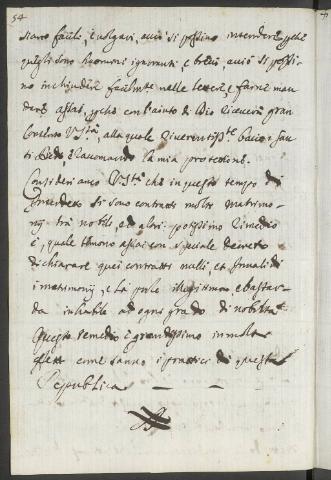 54
siano facili, e volgari, acciò si possino intendere, perche
quelli sono huomini ignoranti, e brevi acciò si possi-
no inchiudere facilmte nelle lettere, e farne man
dare assai, perche con l'aiuto di Dio riceverà gran
V. Sta, alla quale riverentisste bacio i san
ti Piedi, e raccomando la mia protettione.
Consideri anco V. Sta che in questo tempo di
Interdetto si sono contratti molti matrimo-
nij trà nobili, ed altri potissimo rimedio
è, quale temono assai con speciale decreto
dichiarare quei contratti nulli, et Invalidi
i matrimonij, e la prole illegittima e bastar-
da inhabile ad ogni grado di nobiltà
Questo remedio è grandissimo in molti
come sanno i prattici di questa
Republica